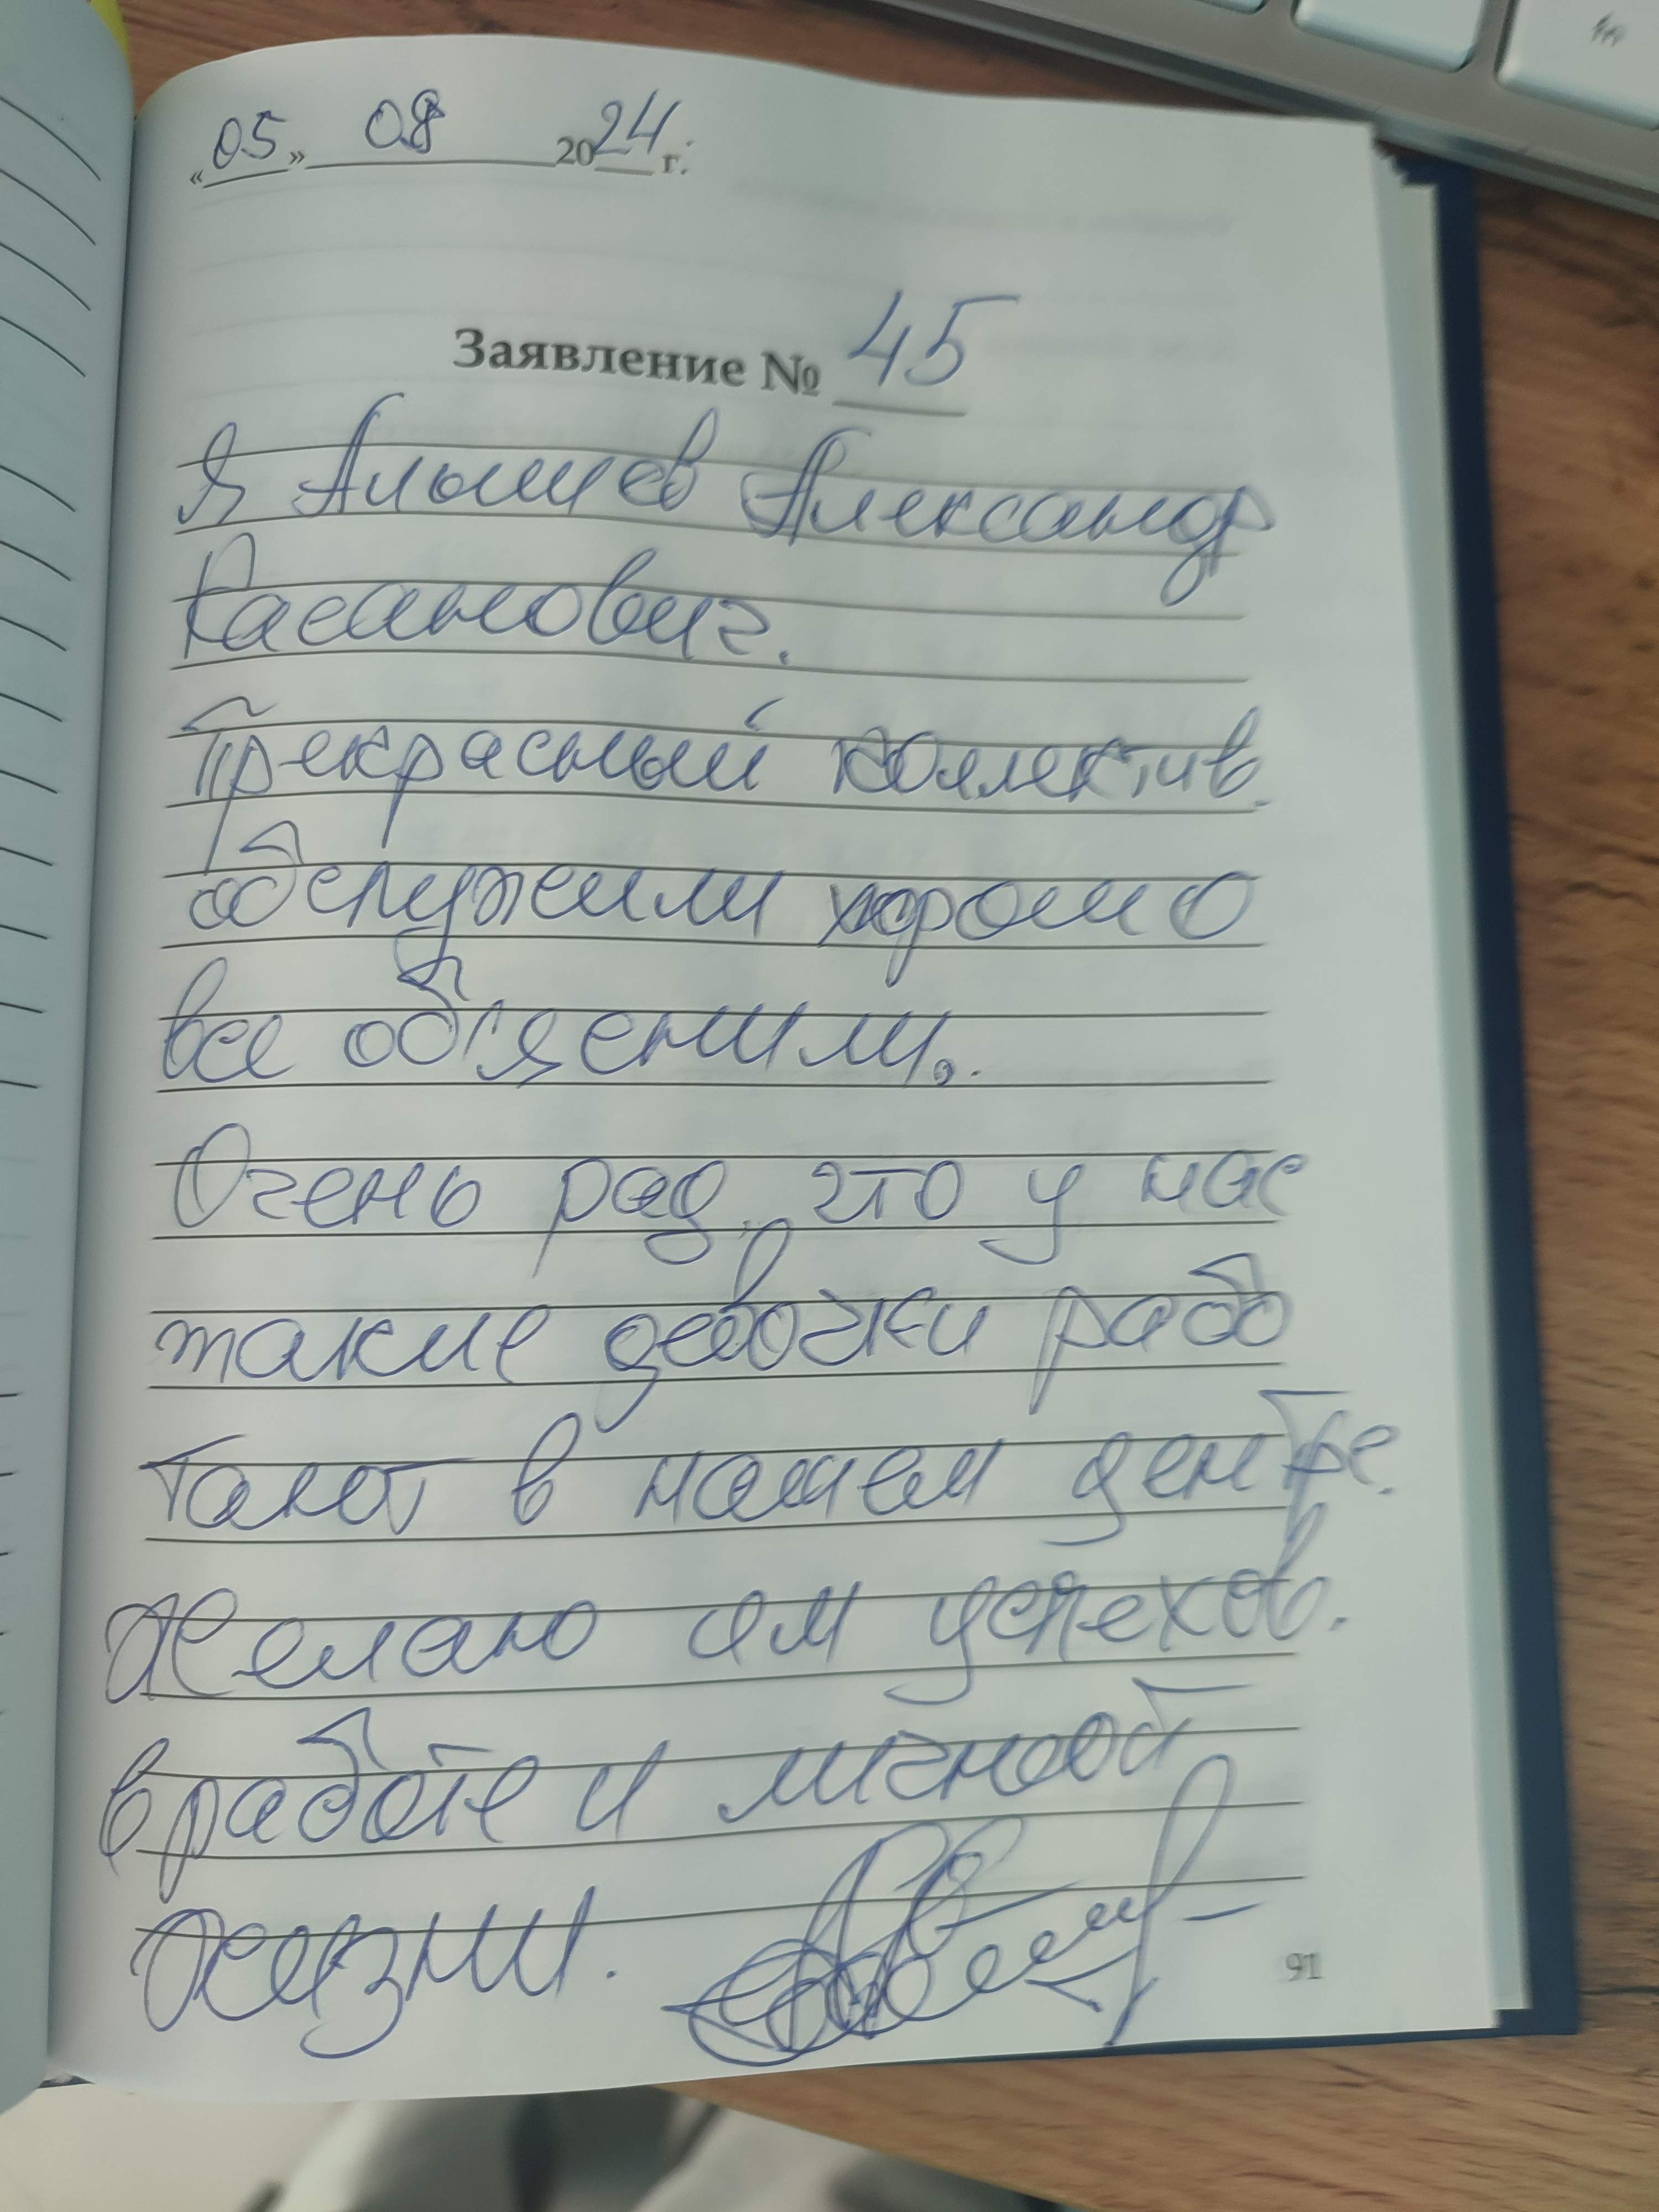 «05» 08 2024 г.
Заявление № 45
Я Алышев Александр
Хасанович.
Прекрасный коллектив.
обслужили хорошо
все обьяснили.
Очень рад, что у нас
такие девочки рабо
тают в нашем центре.
Желаю им успехов.
в работе и личной
жизни.
91